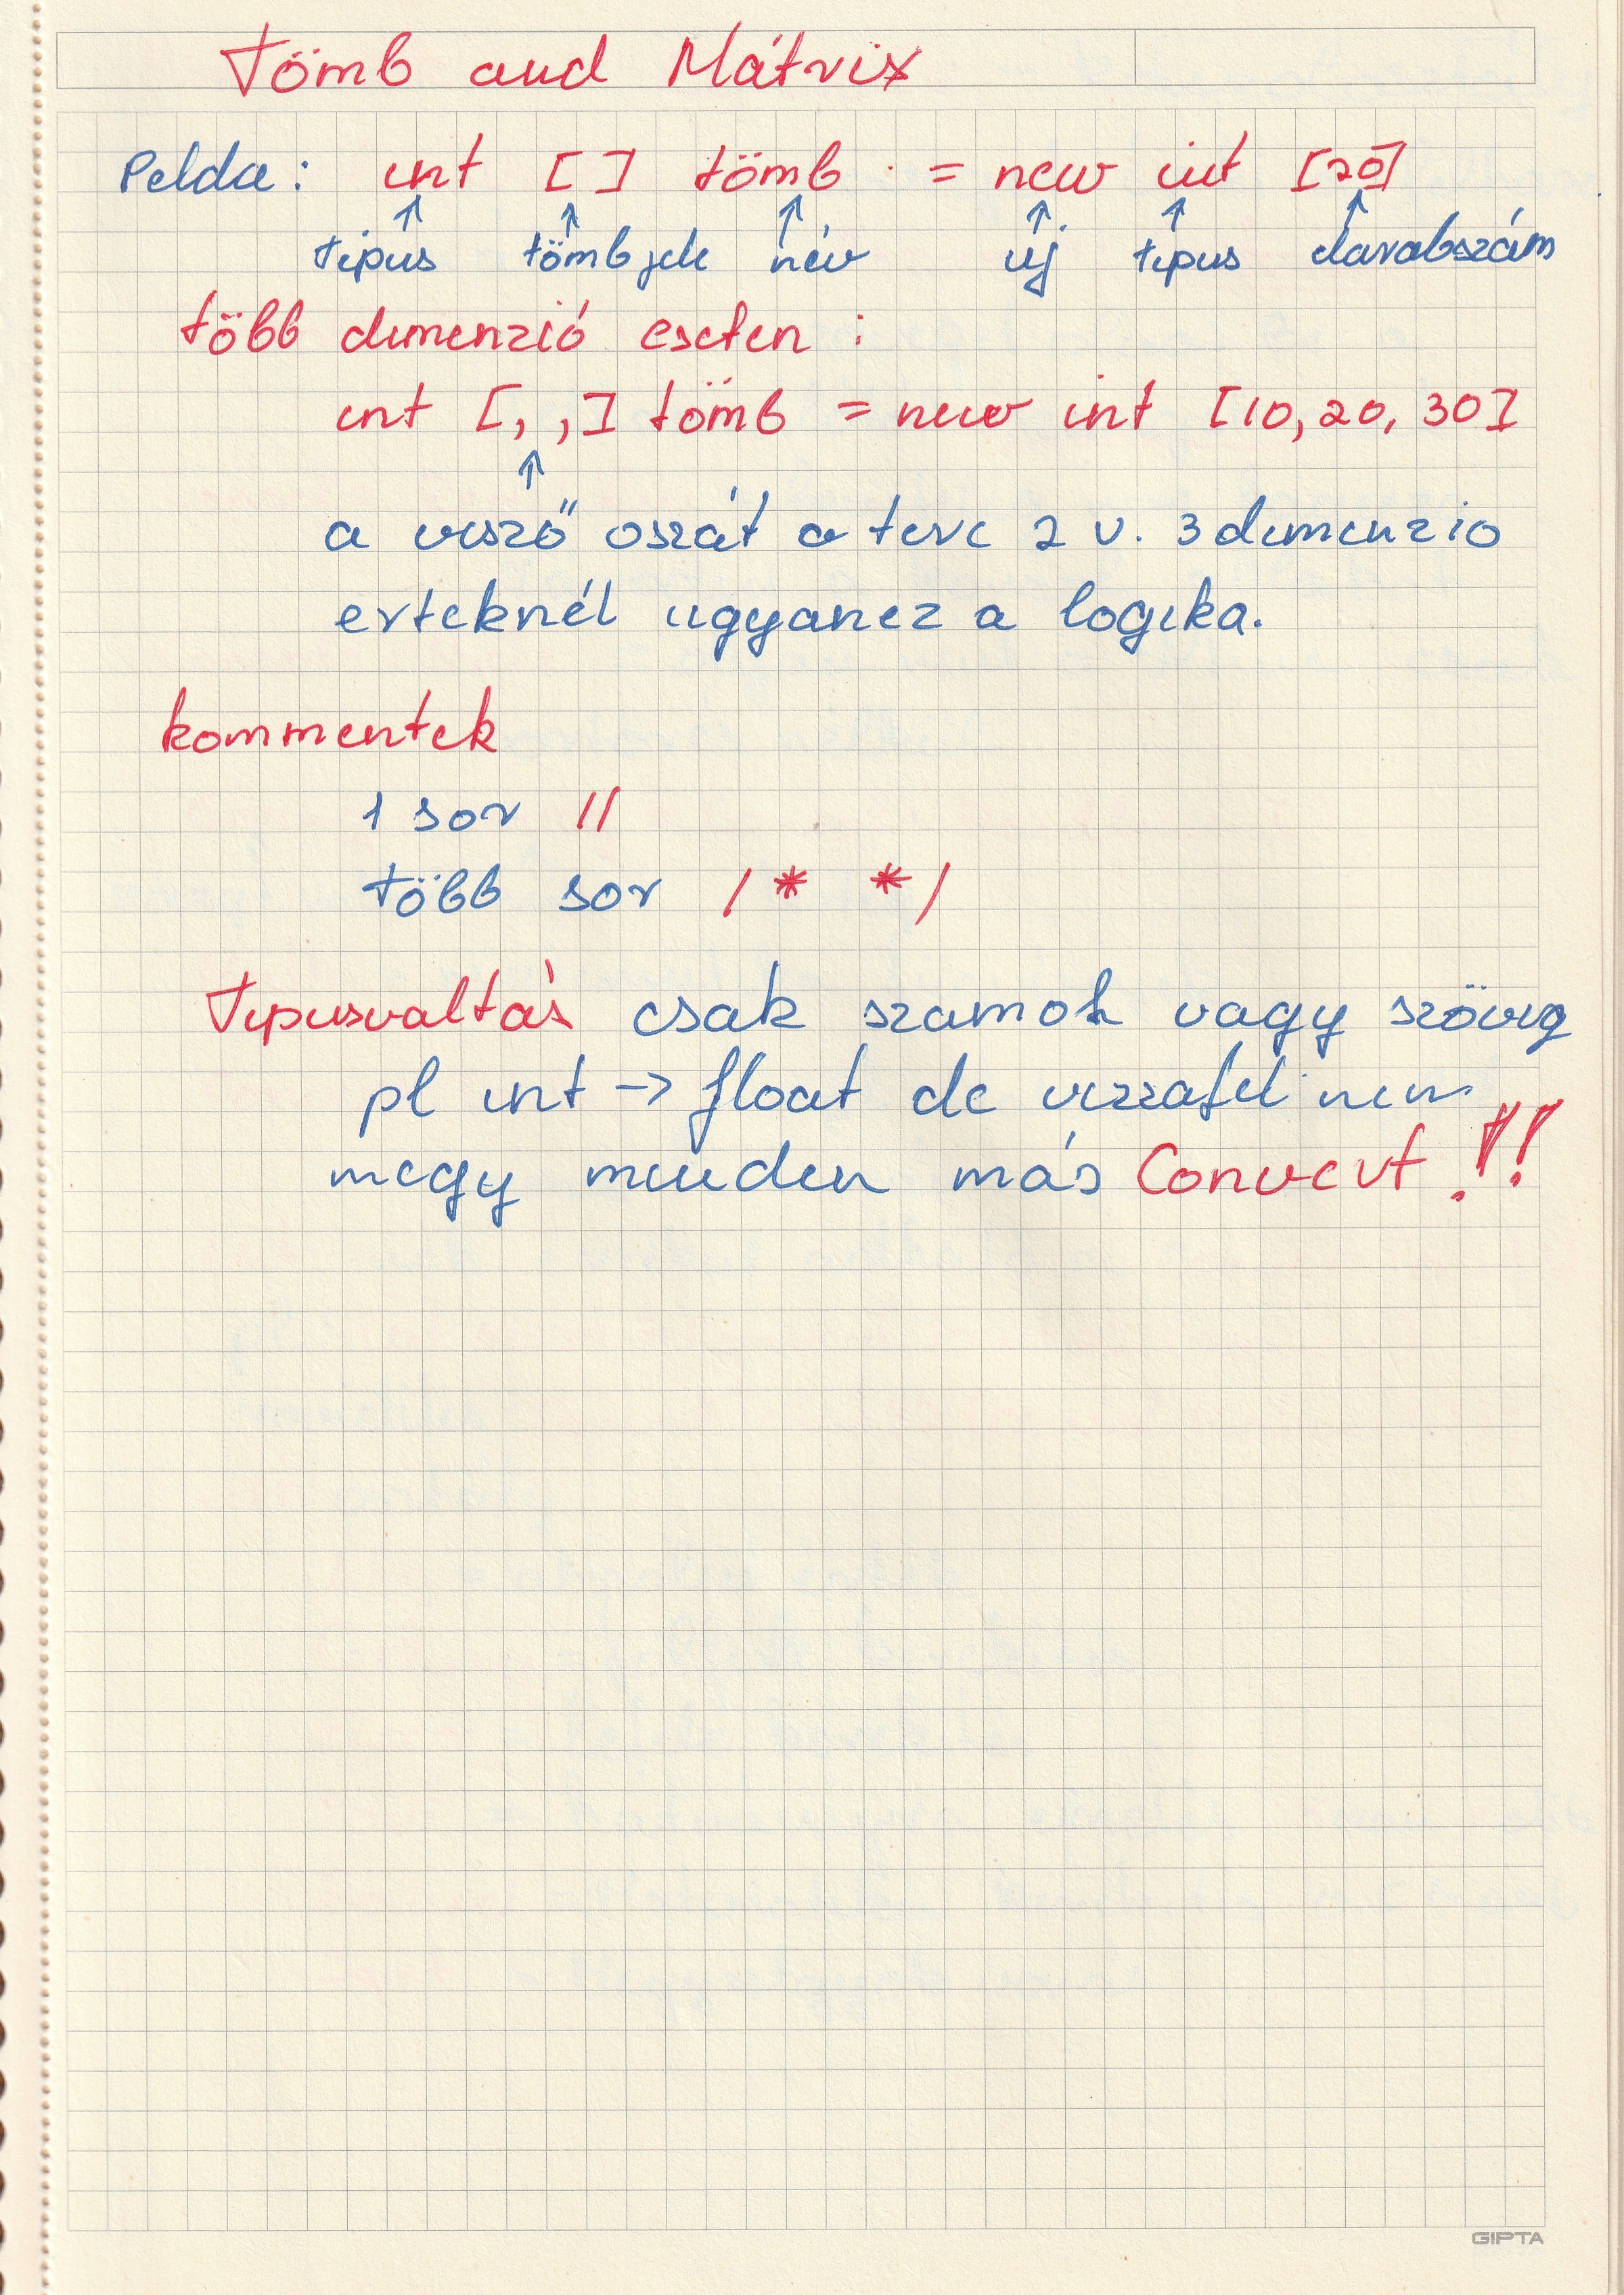 Tömb and Mátrix
Pelda: int [ ] tömb = new int [20]
tipus tömb jele név új tipus darabszám
több dimenzió eseten :
int [, ,] tömb = new int [10, 20, 30]
a vesző oszát a tere 2 v. 3 dimenzio
erteknél ugyanez a logika.
kommentek
1 sor //
több sor /* */
Tipusvaltás csak szamok vagy szöveg
pl int -> float de vizzafel nem
megy minden más Convert !!
GIPTA